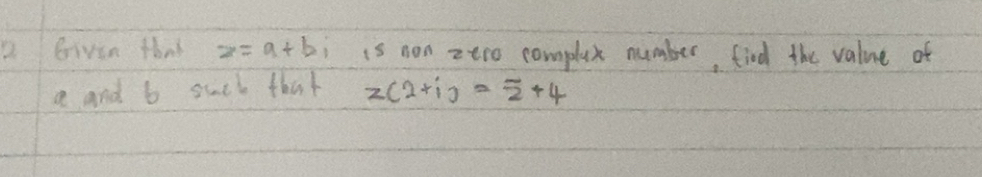 2 Given that z = a + bi is non zero complex number, find the value of
a and b such that z(2+i) = z̅ + 4